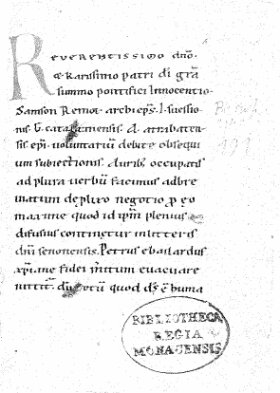 REVERENTISSIMO dño.
& karissimo patri dī grā
summo pontifici Innocentio.
Samson Remoꝝ archiep̄s. I. suessio
nīs. G. catalaunensis. A. atrabaten
sis ep̄i. voluntariū debite obsequi
um subiectionis. Auribꝰ occupatis
ad plura verbū facimus adbre
uiatum de pluri negotio p̱ eo
maxime quod id ipsm plenius
diffusius continetur in litteris
dn̄i senonensis. Petrus ebailardus
xp̄iane fidei mitum euacuare
nititr̄. dū totū quod ds̄ ē huma
BIBLIOTHECA
REGIA
MONACENSIS.